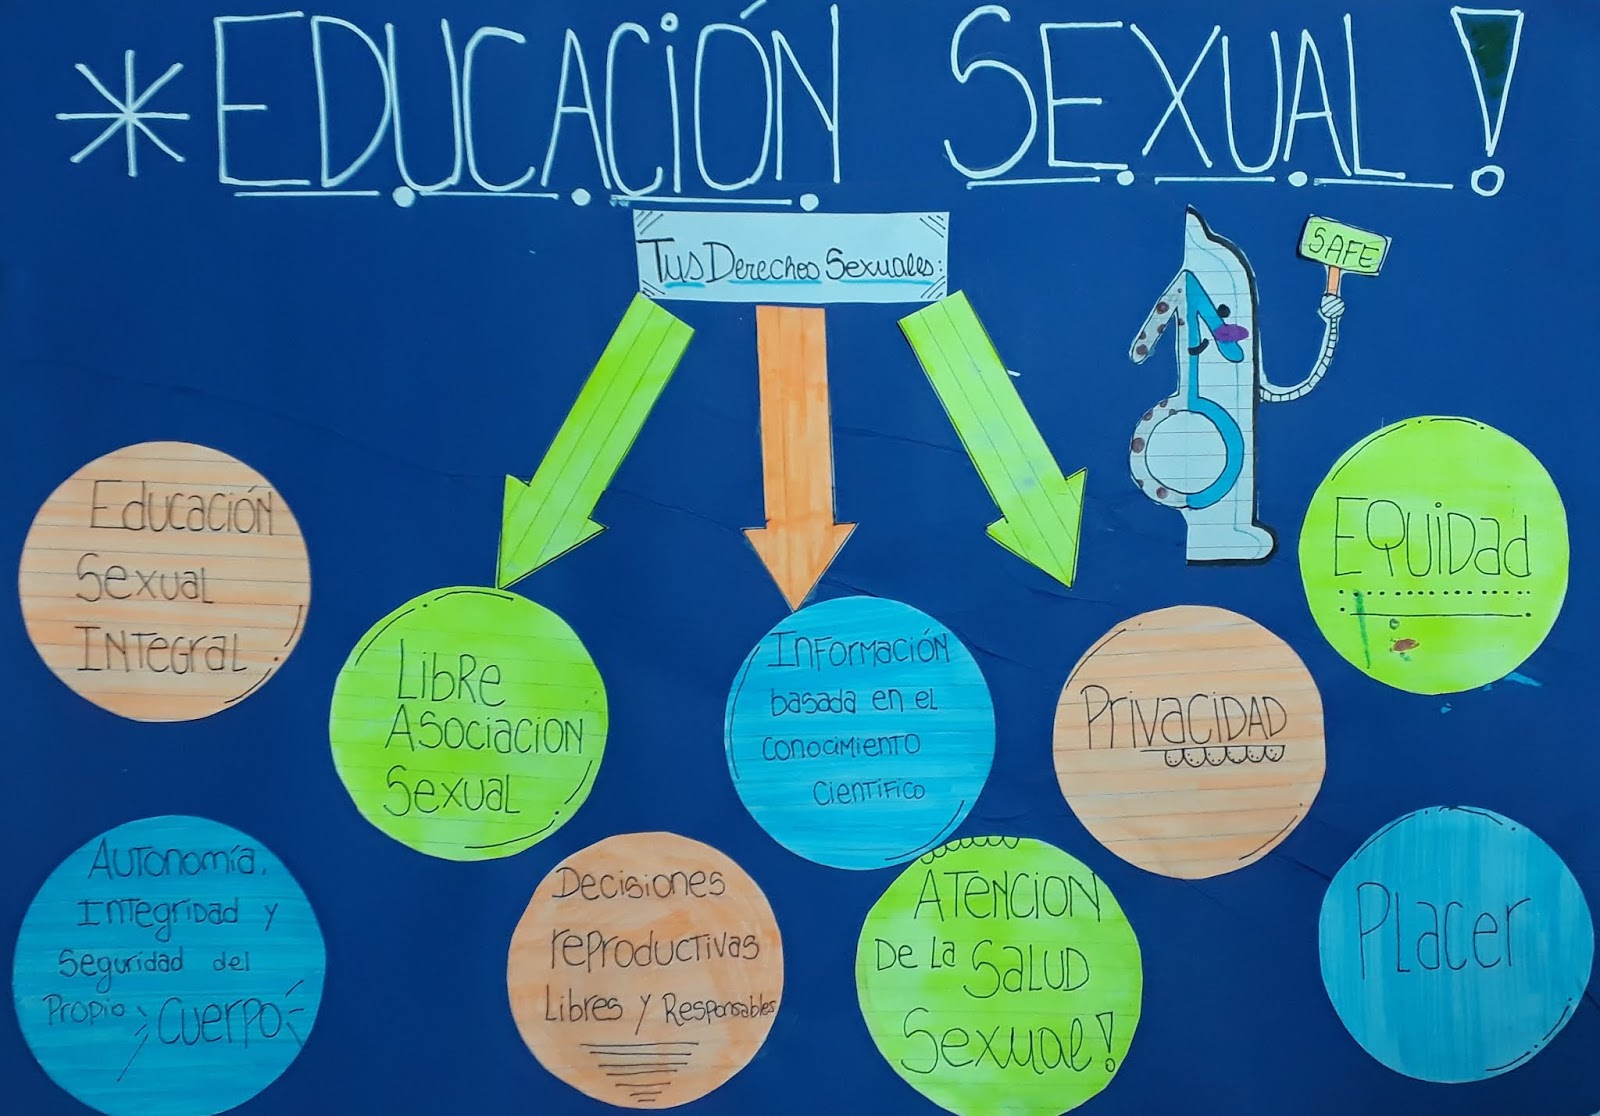 *EDUCACIÓN SEXUAL!
Tus Derechos Sexuales:
SAFE
Educación
Sexual
Integral
Libre
Asociacion
Sexual
Información
basada en el
conocimiento
científico
Privacidad
Equidad
Autonomía,
Integridad y
Seguridad del
Propio Cuerpo
Decisiones
reproductivas
Libres y Responsables
Atencion
De la Salud
Sexual!
Placer